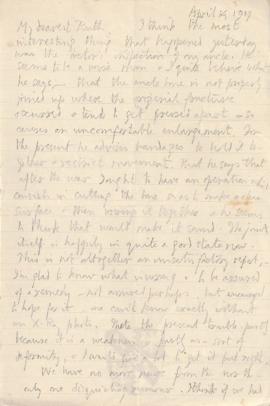 April 25 1917
My dearest Ruth I think the most
interesting thing that happened yesterday
was the doctor's inspection of my ankle. He
seems to be a wise man & I quite believe what
he says, that the ankle bone is not properly
joined up where the original fracture
occurred & tends to get pressed apart & so
causes an uncomfortable enlargement. For
the present he advises bandages to hold it to-
gether & restrict movement. But he says that
after the war I ought to have an operation which
consists in cutting the bone so as to make a clean
surface & then bringing it together & he seems
to think that would make it sound. The joint
itself is happily in quite a good state now.
This is not altogether an unsatisfactory report,
I'm glad to know what is wrong & to be assured
of a remedy - not assured perhaps, but encouraged
to hope for it. we can't know exactly without
an X-Ray photo. I hate the present trouble partly
because it is a weakness & partly as a sort of
deformity, & I would give a lot to get it put right.
We have no more news from the north
only one disquieting rumour. I think if we had